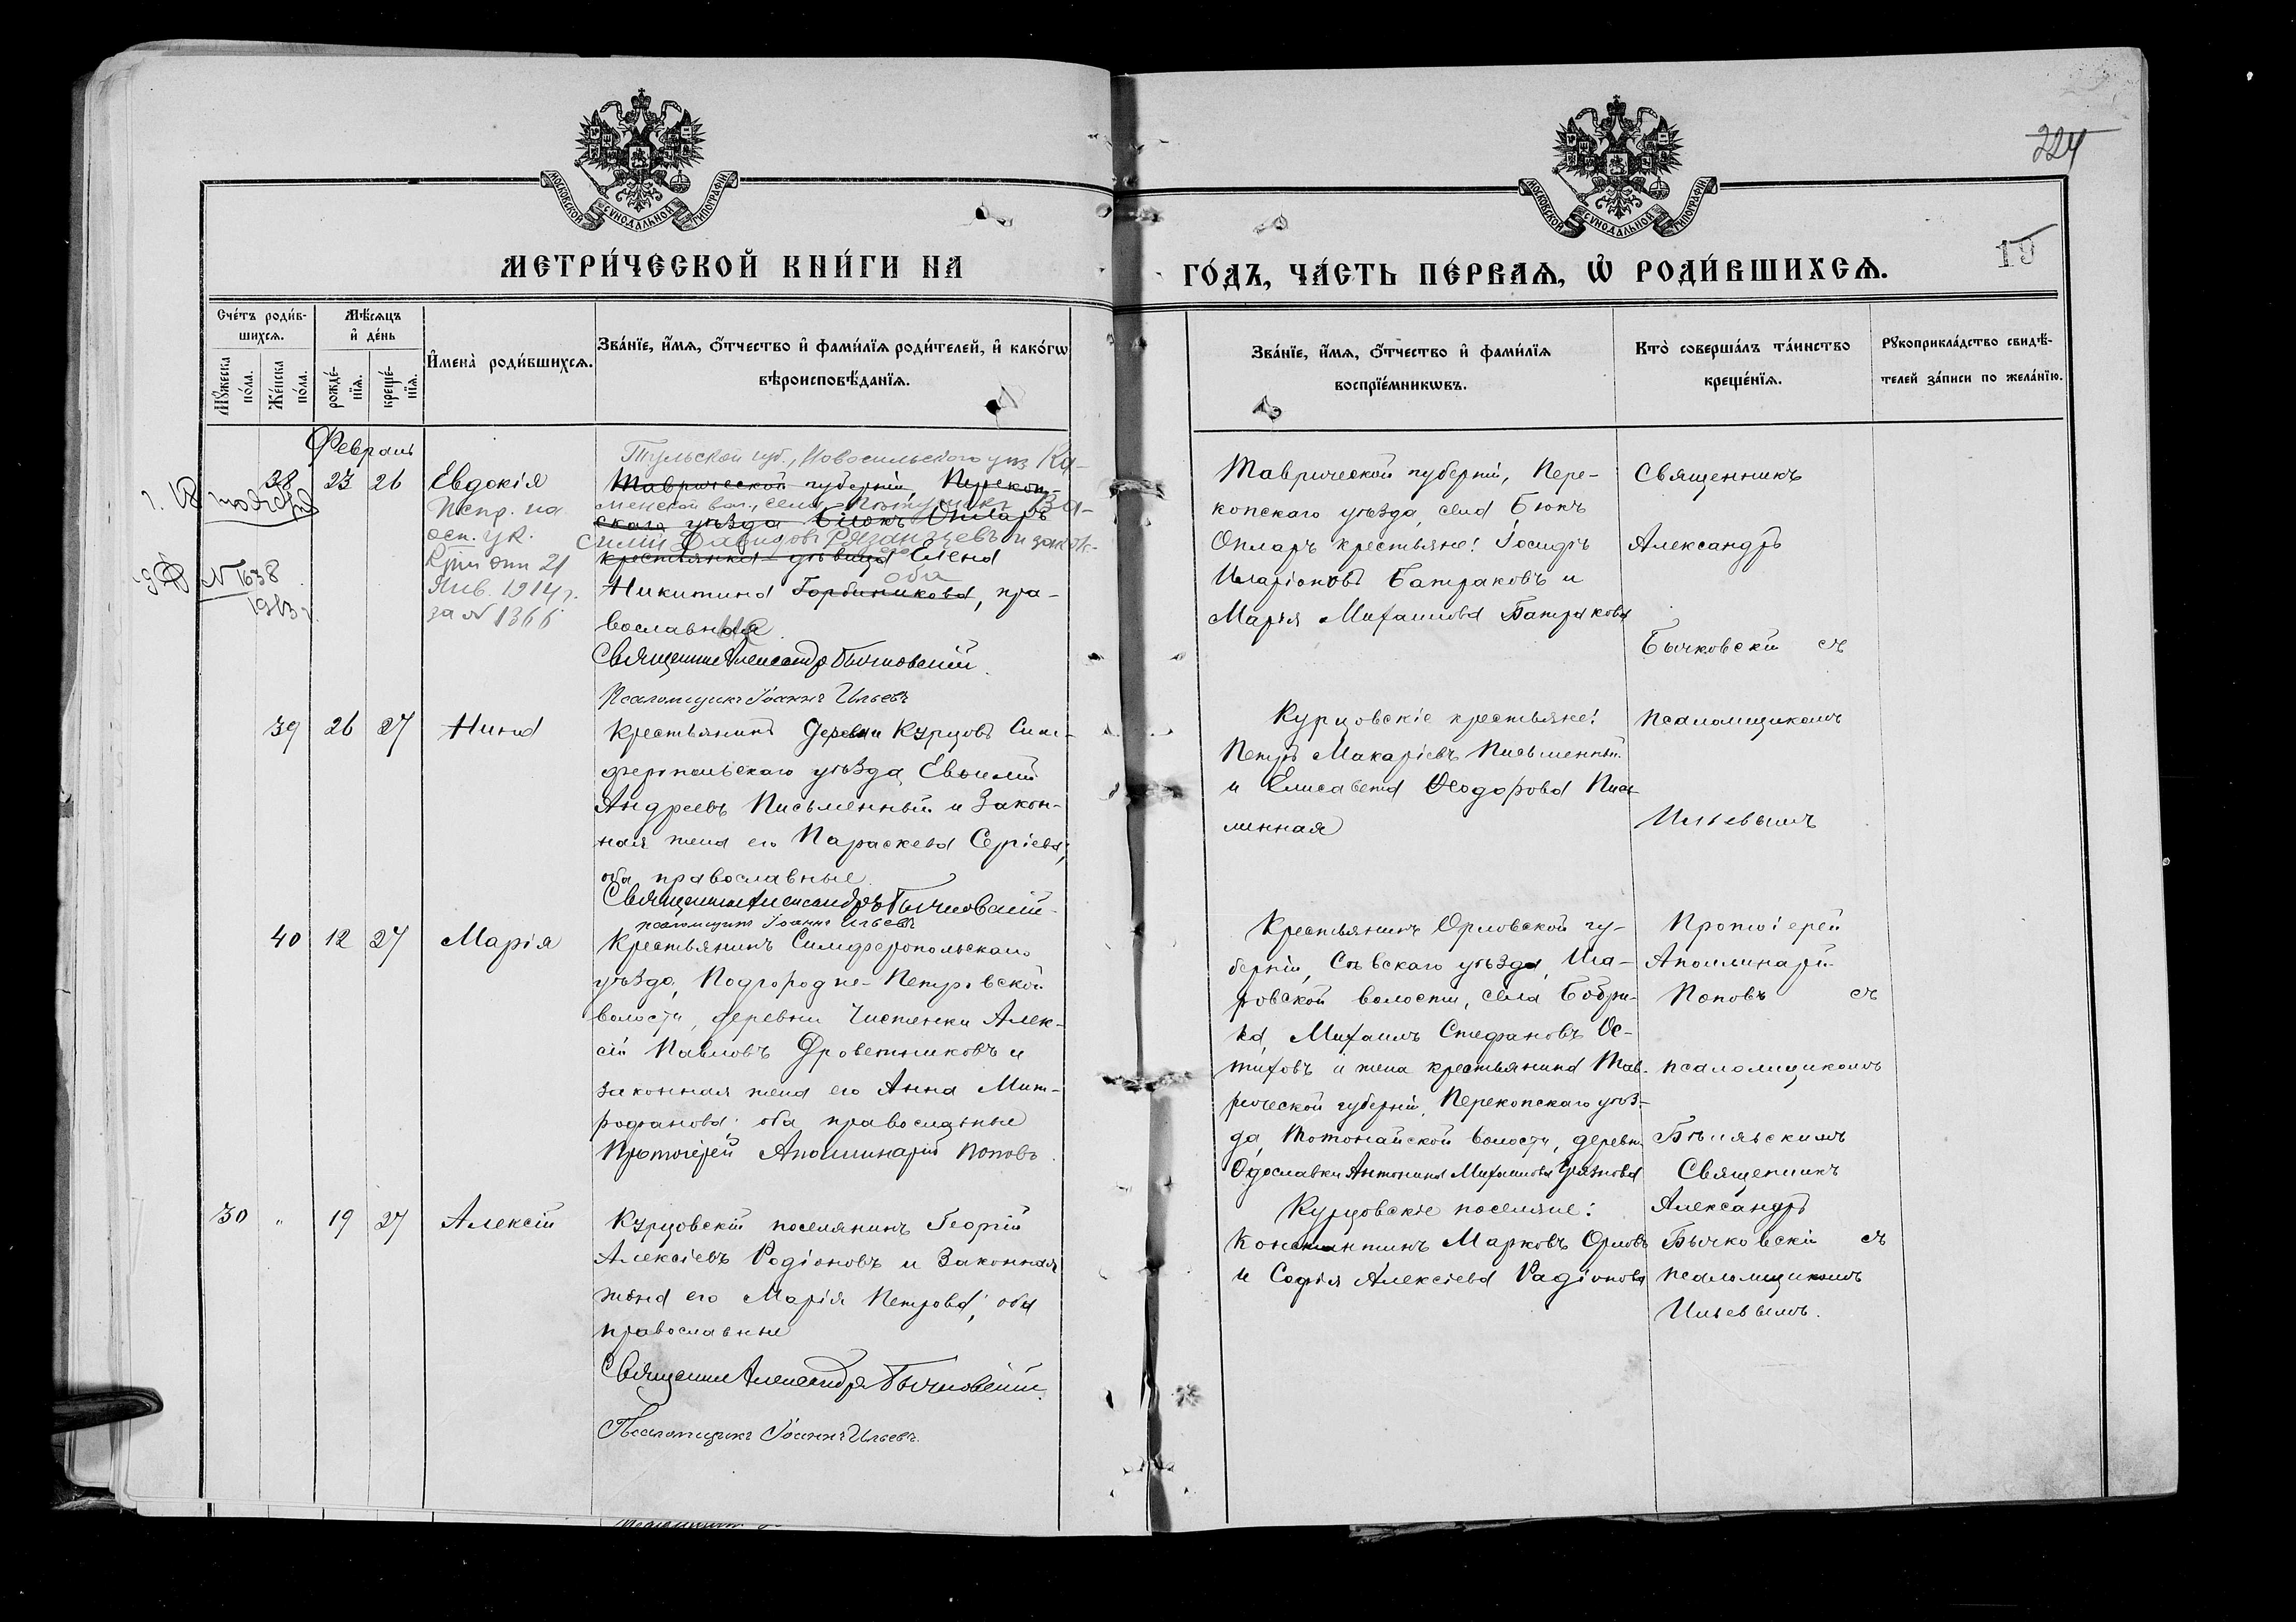 224
19
МОСКОВСКОЙ СУНОДАЛЬНОЙ ТИПОГРАФІИ
МОСКОВСКОЙ СУНОДАЛЬНОЙ ТИПОГРАФІИ
МЕТРИ́ЧЕСКОЙ КНИ́ГИ НА
ГО́ДЪ, ЧА́СТЬ ПЕ́РВАѦ, Ѡ҆ РОДИ́ВШИХСѦ.
Сче́тъ роди́в-
шихсѧ.
Мꙋ́жеска по́ла.
Же́нска по́ла.
Мѣ́сѧцъ
и҆ де́нь
рожде́-
нїѧ.
креще́-
нїѧ.
И҆мена̀ роди́вшихсѧ.
Зва́нїе, и҆́мѧ, ѻ҆́тчество и҆ фами́лїѧ роди́телей, и҆ како́гѡ
вѣроисповѣ́данїѧ.
Зва́нїе, и҆́мѧ, ѻ҆́тчество и҆ фами́лїѧ
воспрїе́мникѡвъ.
Кто̀ соверша́лъ та́инство
креще́нїѧ.
Рꙋкоприкла́дство свидѣ́-
телей за́писи по жела́нїю.
Февраль
38 23 26 Евдокія
Испр. на
осн. ук.
от 21
Янв. 1914 г.
за № 1366
№ 1638
1913 г.
Тульской губ., Новосильскаго уез Ка-
Таврической губерніи, Перекоп-
менской вол., села
скаго уѣзда Біюкъ Онларъ
Ва-
силій Давидовъ Рязанцевъ и закон.
крестьянка дѣвица Елена
Никитина Горбиникова, пра-
оба
вославная
Священникъ Александръ Бычковскій.
Псаломщикъ Іоаннъ Ильевъ
Таврической губерніи, Пере-
копскаго уѣзда, села Бюкъ
Онларъ крестьяне: Іосифъ
Иларіоновъ Батраковъ и
Марія Михаилова Батракова
Священникъ
Александръ
Бычковскій съ
39 26 27 Нина
Крестьянинъ Деревни Курцовъ Сим-
феропольскаго уѣзда Евѳимій
Андреевъ Письменный и Закон-
ная жена его Параскева Сергіева;
оба православные
Священникъ Александръ Бычковскій
псаломщикъ Іоаннъ Ильевъ
Курцовскіе крестьяне:
Петръ Макаріевъ Письменный
и Елисавета Ѳеодорова Пись-
менная
псаломщикомъ
Ильевымъ
40 12 27 Марія
Крестьянинъ Симферопольскаго
уѣзда, Подгородне-Петровской
волости, деревни Чистенки Алек-
сій Павловъ Дроветниковъ и
законная жена его Анна Мит-
рофанова; оба православные
Протоіерей Аполлинарій Поповъ.
Крестьянинъ Орловской гу-
берніи, Сѣвскаго уѣзда,
ровской волости, села Бобри-
ка, Михаилъ Стефановъ Ос-
таховъ и жена крестьянина Тав-
рической губерніи, Перекопскаго уѣз-
да, Тотонайской волости, деревни
Антонина Михаилова
Протоіерей
Аполлинарій
Поповъ съ
псаломщикомъ
Бѣляевскимъ
30 " 19 27 Алексій
Курцовскій поселянинъ Георгій
Алексіевъ Родіоновъ и Законная
жена его Марія Петрова; оба
православные
Священникъ Александръ Бычковскій.
Псаломщикъ Іоаннъ Ильевъ.
Курцовскіе поселяне:
Константинъ Марковъ Орловъ
и Софія Алексіева Радіонова
Священникъ
Александръ
Бычковскій съ
псаломщикомъ
Ильевымъ.